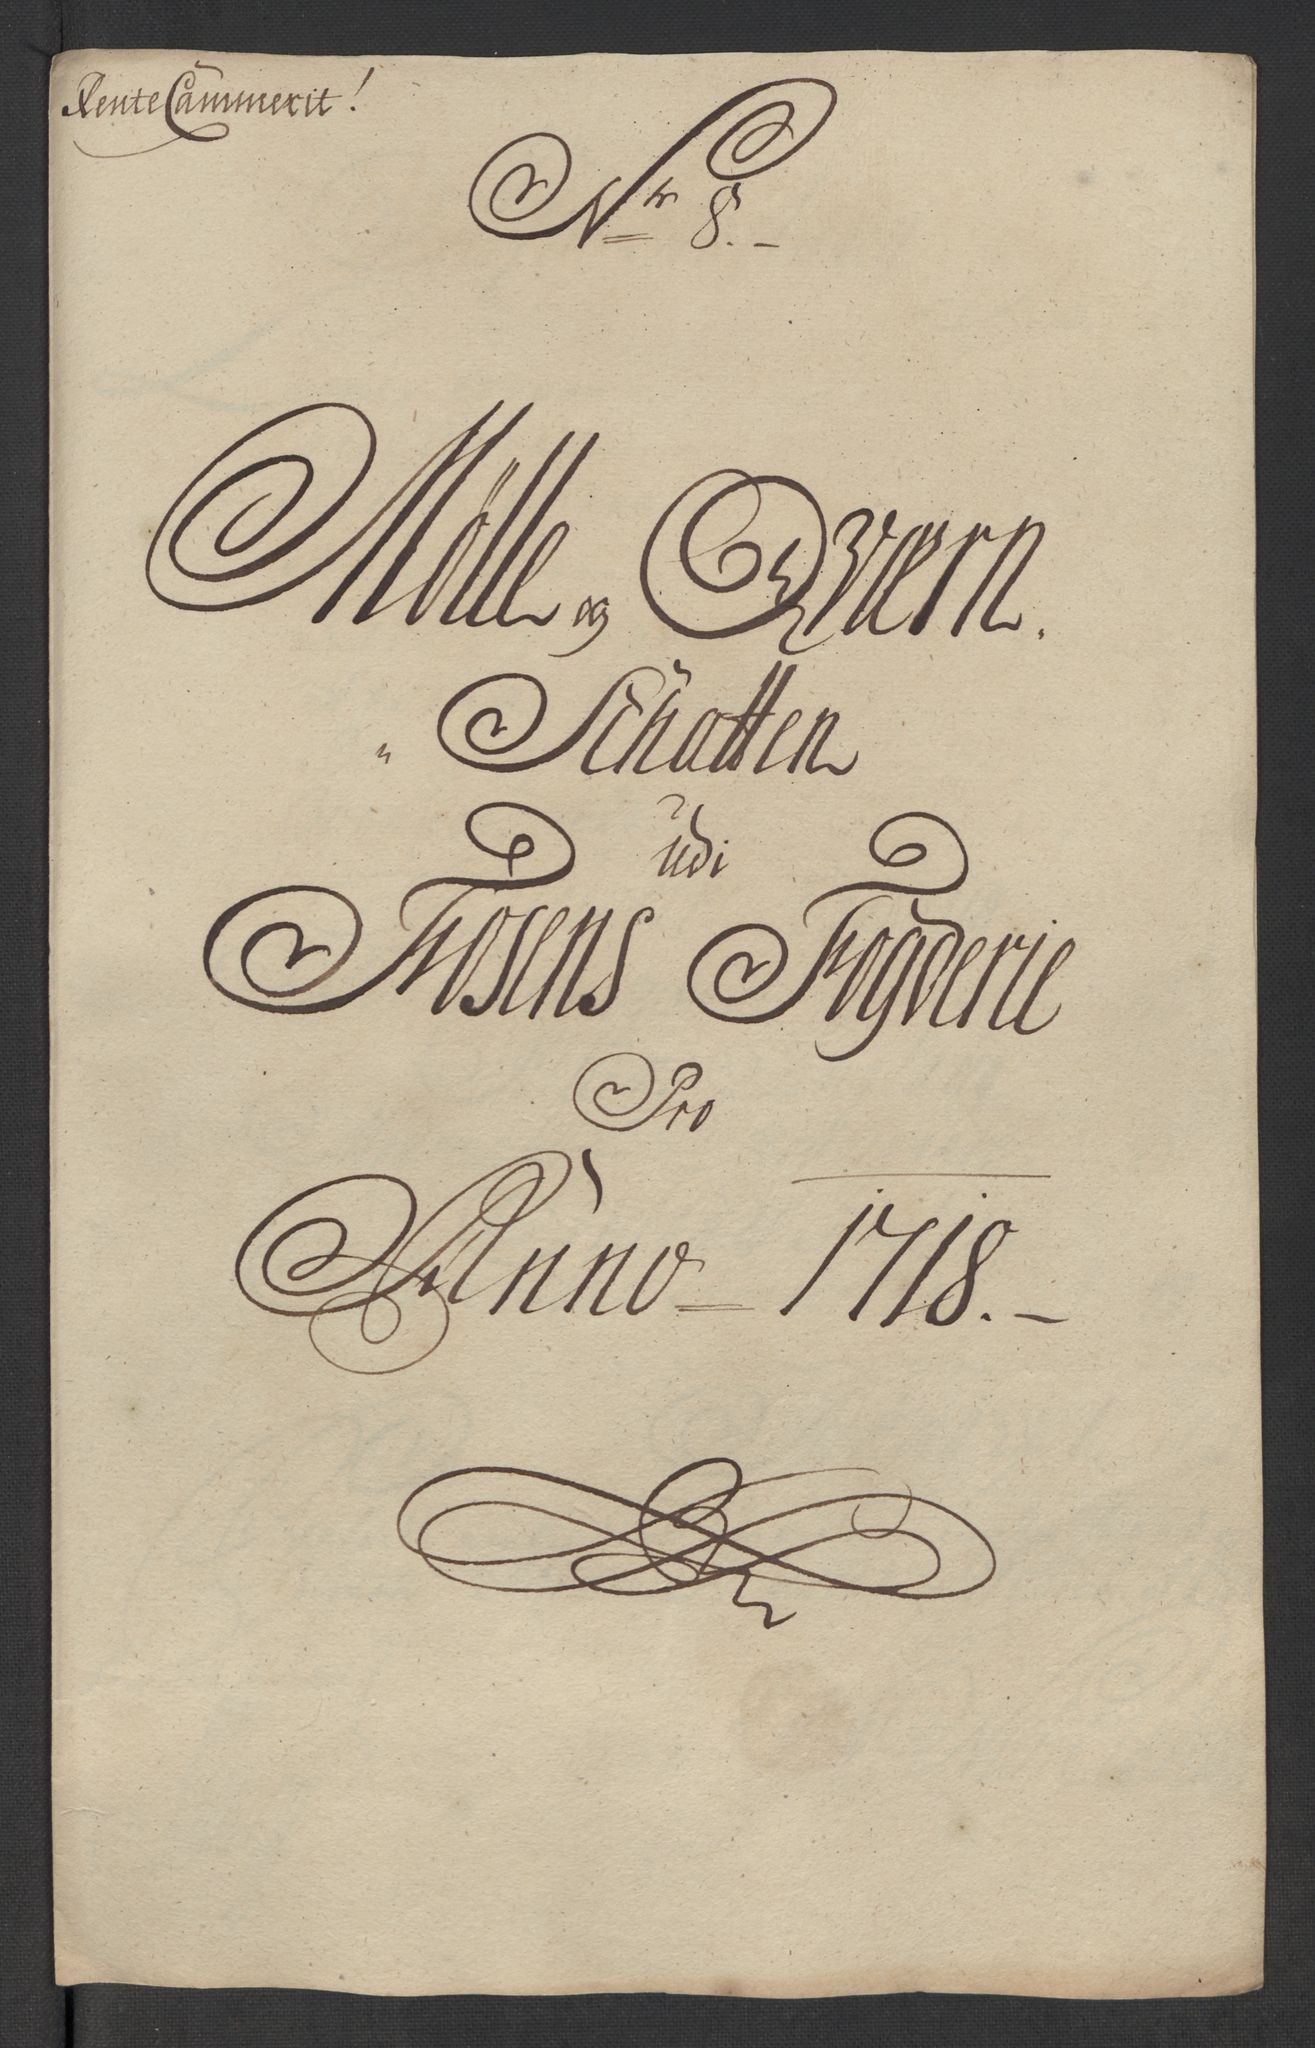 RenteCammerit!
Nr 8.-
Mölle og Qværn.
Schatten
udi
Fosens Fogderie
Pro
Anno 1718.-